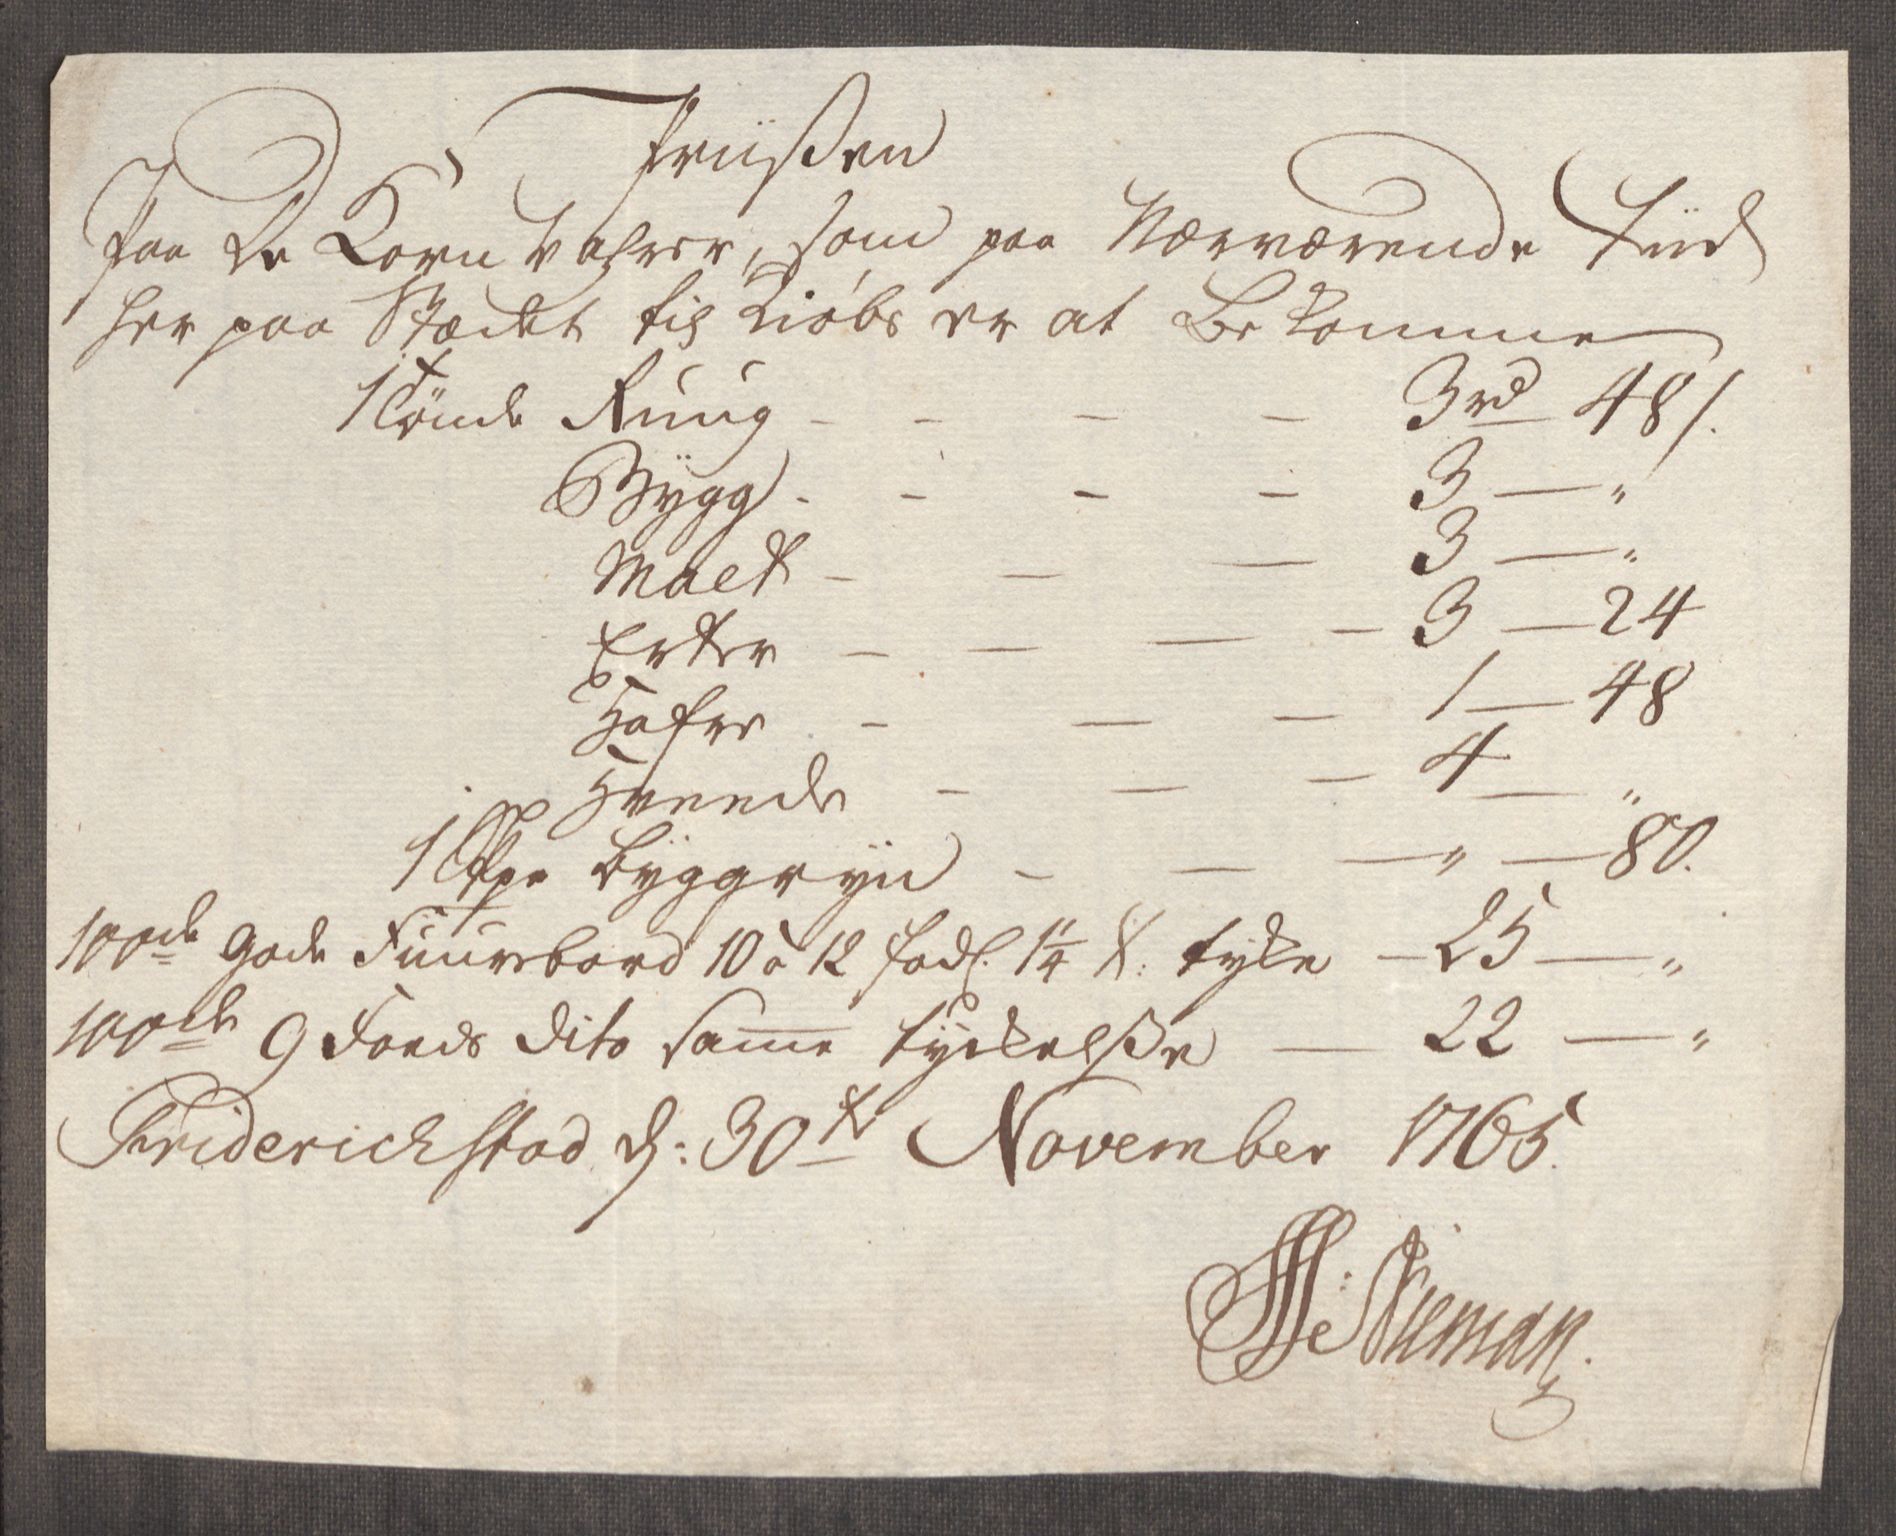 Priißen
Paa de Korn Vahrer, som paa Nærværende Tiid
her paa Stædet til Kiøbs er at Bekomme
1 Tønde Ruug - - - - 3 rd 48 s.
Bÿgg - - - - 3 — "
Malt - - - 3 — "
Erter - - - - 3 — 24
Hafre - - - 1 — 48
Hveede - - - 4 — "
1 Skpe Bÿggrÿn - - — " — 80.
100de gode Fuurebord 10 a 12 fods. 1¼ t: tykke — 25 — "
100de 9 Foeds dito samme tÿckelße — 22 — "
Friderichstad d: 30te November 1765.